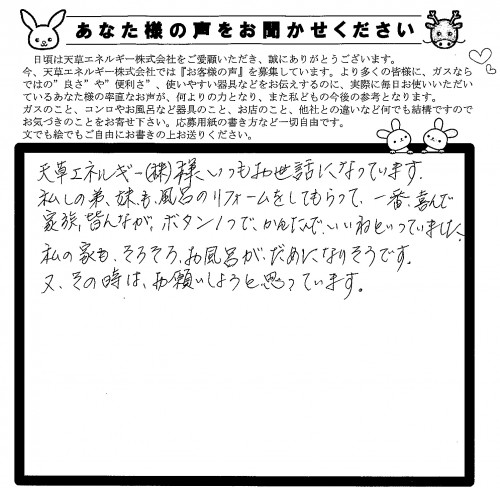 あなた様の声をお聞かせください
日頃は天草エネルギー株式会社をご愛顧いただき、誠にありがとうございます。
今、天草エネルギー株式会社では『お客様の声』を募集しています。より多くの皆様に、ガスなら
ではの”良さ”や”便利さ”、使いやすい器具などをお伝えするのに、実際に毎日お使いいただい
ているあなた様の率直なお声が、何よりの力となり、また私どもの今後の参考となります。
ガスのこと、コンロやお風呂など器具のこと、お店のこと、他社との違いなど何でも結構ですので
お気づきのことをお寄せ下さい。応募用紙の書き方など一切自由です。
文でも絵でもご自由にお書きの上お送りください。
天草エネルギー(株)様、いつもお世話になっています。
私しの弟、妹も、風呂のリフォームをしてもらって、一番、喜んで
家族、皆んなが、ボタン1つで、かんたんで、いいねといっていました。
私の家も、そろそろ、お風呂が、だめになりそうです。
又、その時は、お願いしようと思っています。